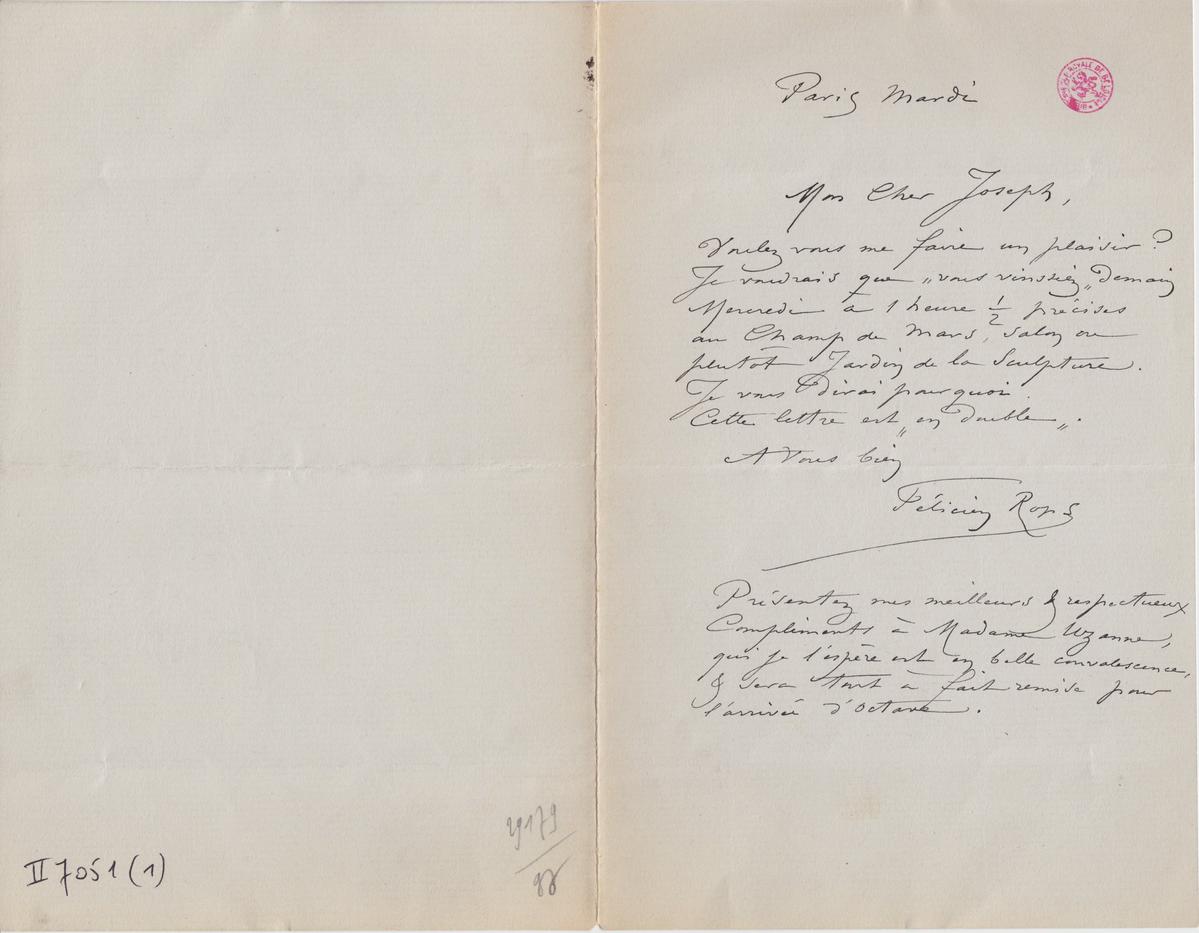 Paris Mardi
Mon Cher Joseph,
Voulez vous me faire un plaisir ?
Je voudrais que „vous vinssiez„ demain
Mercredi à 1 heure ½ précises
au Champ de Mars, Salon ou
plutôt Jardin de la Sculpture.
Je vous dirai pourquoi.
Cette lettre est „en double„.
A Vous bien
Félicien Rops
Présentez mes meilleurs & respectueux
Compliments à Madame Uzanne,
qui je l'espère est en belle convalescence,
& sera tout à fait remise pour
l'arrivée d'Octave.
II 7051 (1)
29179